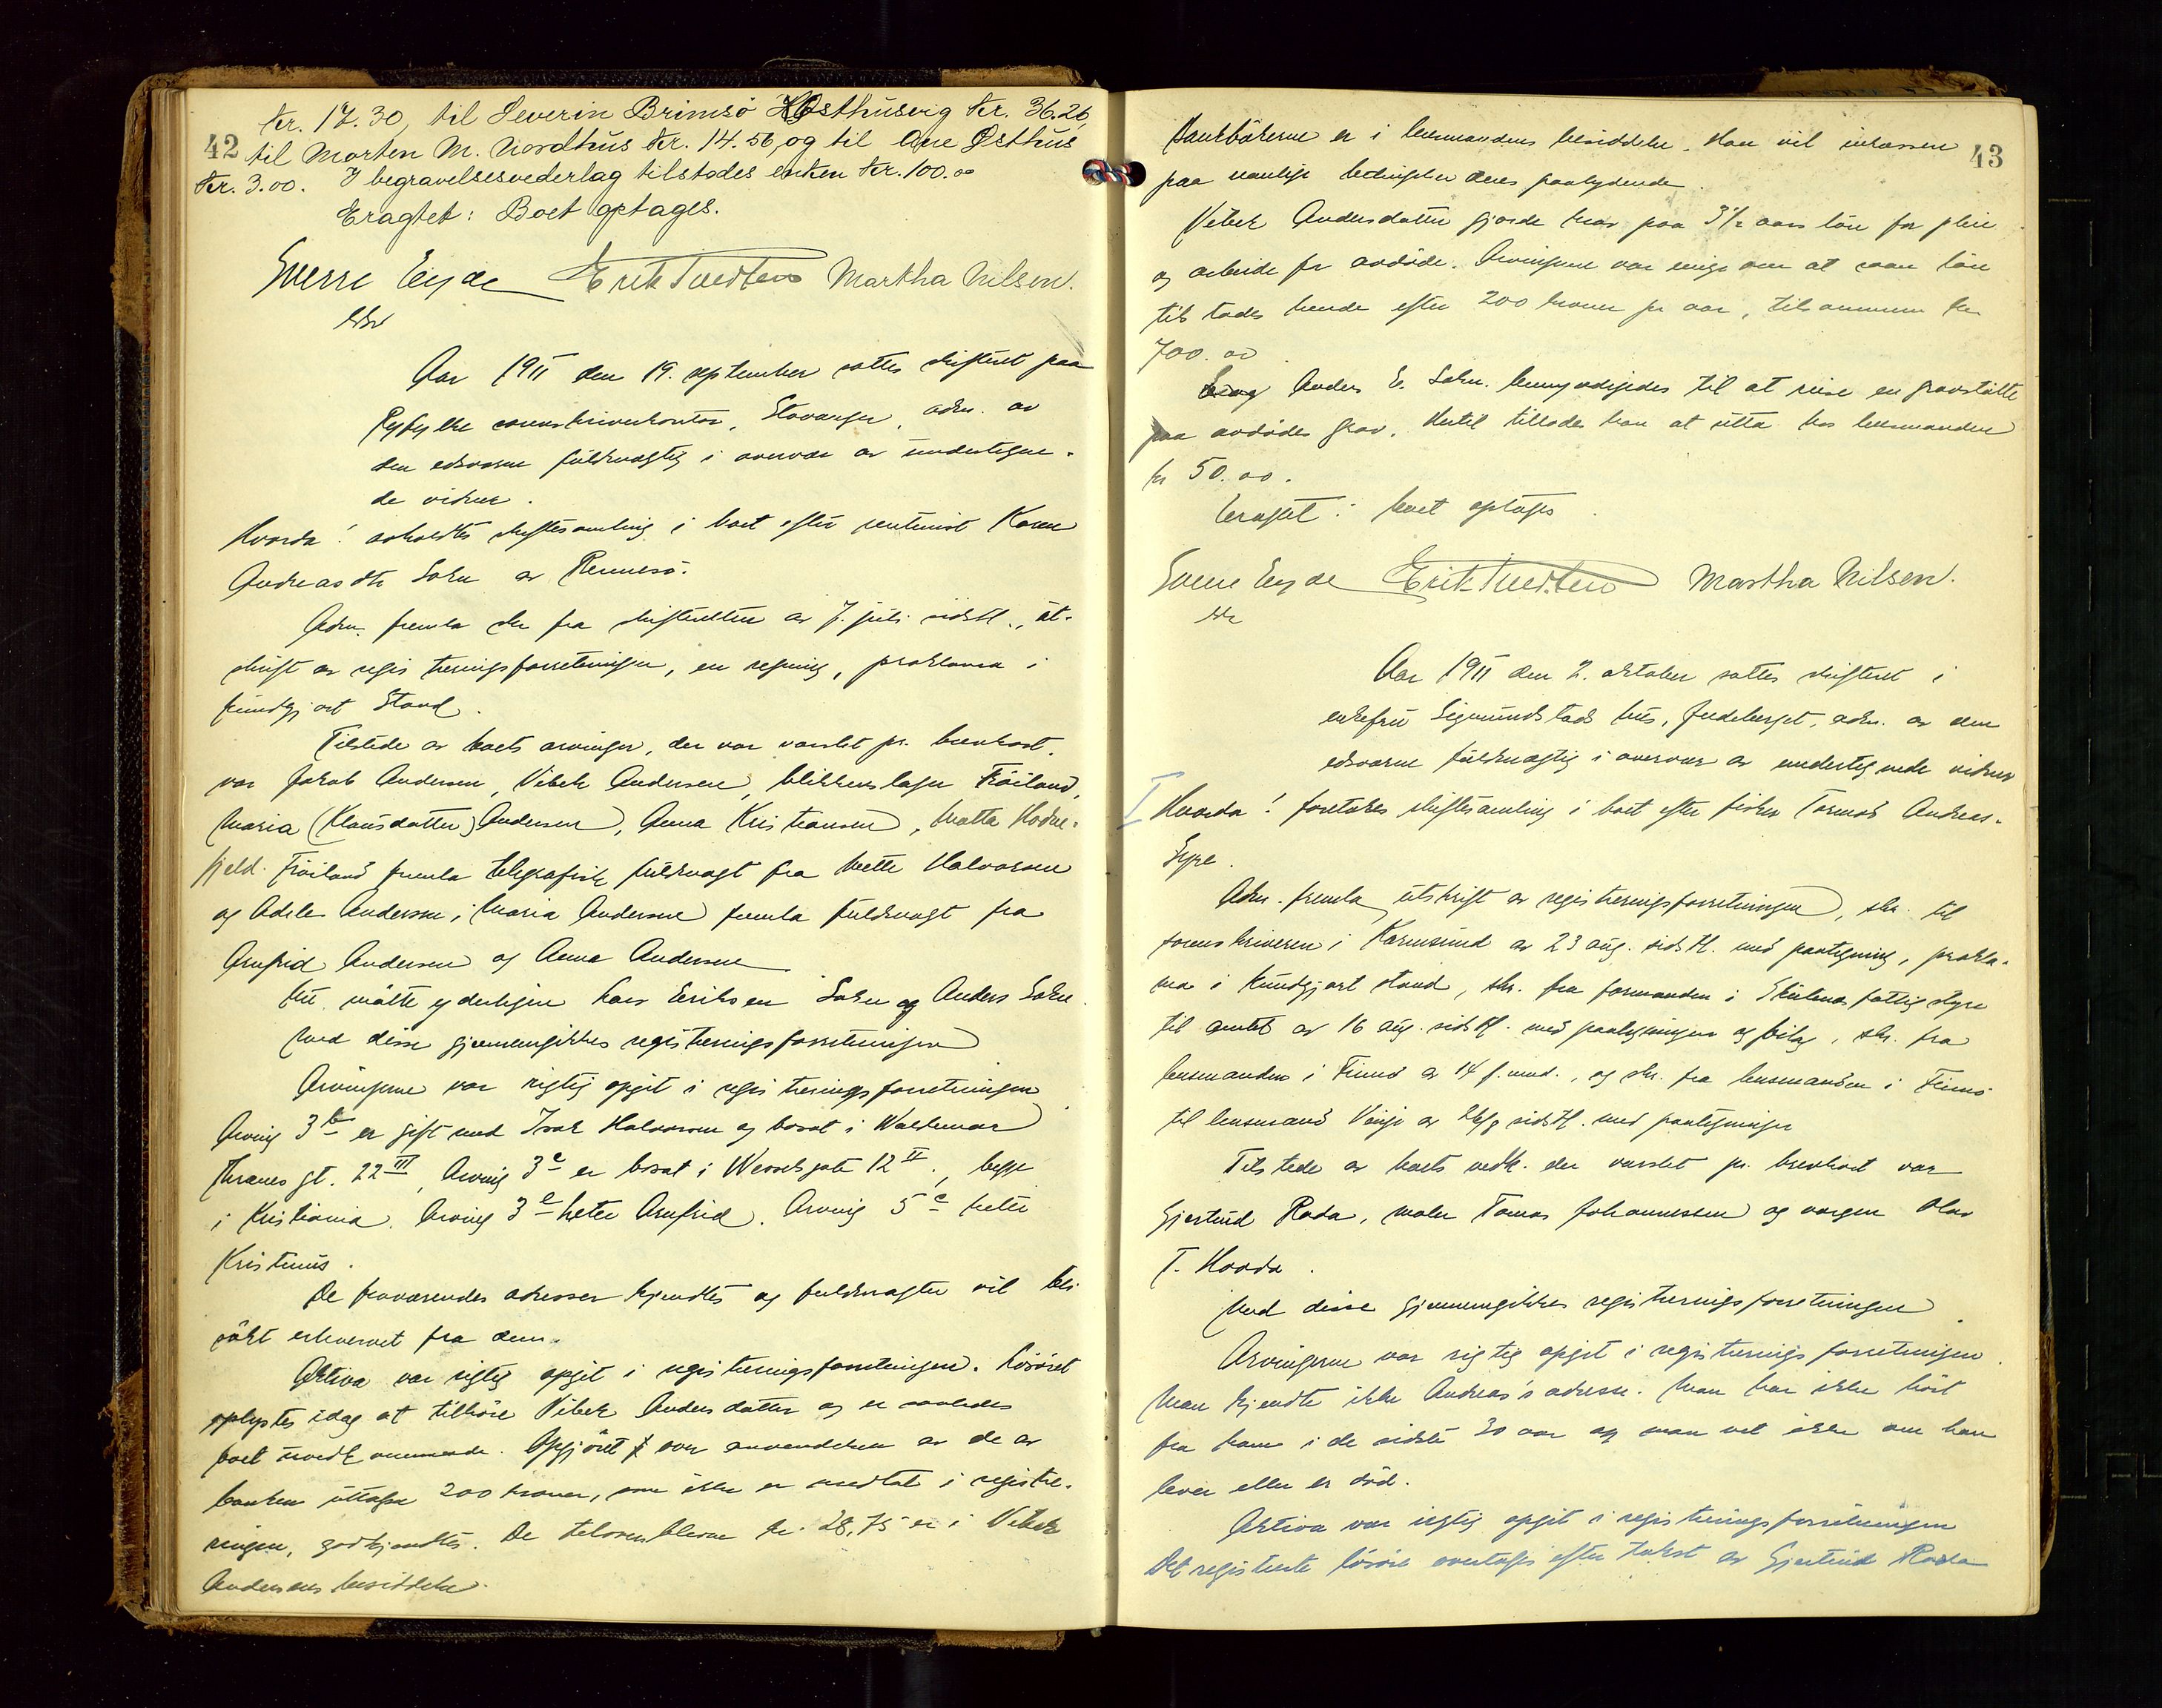 42
Kr. 17.30, til Severin Brimsö Østhusvig Kr. 36.26,
til Morten M. Nordhus Kr. 14.56, og til Ane Østhus
Kr. 3.00. I begravelsesvederlag tilstodes enken Kr. 100.00
Eragtet: Boet optages.
Sverre Eyde Erik Tvedten Martha Nilsen.
Aar 1911 den 19. september sattes skifteret paa
Ryfylke sorenskriverkontor, Stavanger, adm. av
den edsvorne fuldmægtig i overvær av undertegne-
de vidner.
Hvorda: avholdtes skiftesamling i boet efter rentenist Karen
Andreasdtr Sokn av Rennesö.
Adm. fremla skr fra skifteretten av 7. juli sidstl., ut-
skrift av registreringsforretningen, en regning, proklama i
kundgjort stand.
Tilstede av boets arvinger, der var varslet pr. brevkort,
var Jakob Andersen, Vibek Andersen, blikkenslager Fröiland,
Maria (Klausdatter) Andersen, Anna Kristiansen, Matta Hodne-
fjeld. Fröiland fremla telegrafisk fuldmagt fra Mette Halvorsen
og Adele Andersen; Maria Andersen fremla fuldmagt fra
Arnfrid Andersen og Anna Andersen
mötte yderligere Lars Eriksen Sokn og Anders Sokn.
Med disse gjennemgikkes registreringsforretningen
Arvingerne var rigtig opgit i registreringsforretningen.
Arving 3 b er gift med Isak Halvorsen og bosat i Waldemar
Thranes gt. 22 III, Arving 3 c er bosat i Wesselsgate 12 II, begge
i Kristiania. Arving 3 e heter Arnfrid. Arving 5 c heter
Kristinius.
De fraværendes adresser kjendtes og fuldmagter vil bli
sökt erhvervet fra dem.
Aktiva var rigtig opgit i registreringsforretningen. Lösöret
oplystes idag at tilhöre Vibek Andersdatter og er saaledes
boet uvedkommende. Opgjöret over anvendelsen av de av
banken uttagne 200 kroner, som ikke er medtat i registre-
ringen, godkjendtes. De tiloversblevne kr. 28,75 er i Vibek
Andersens besiddelse.
43
Bankbökerne er i lensmandens besiddelse. Han vil inkassere
paa vanlige betingelser deres paalydende.
Vibek Andersdatter gjorde krav paa 3 1/2 aars lön for pleie
og arbeide for avdöde. Arvingerne var enige om at saan lön
tilstodes hende efter 200 kroner pr aar, tilsammen kr
700.00.
Anders E. Sokn. bemyndigedes til at reise en gravstötte
paa avdödes grav. Hertil tillodes han at utta hos lensmanden
kr 50.00.
Eragtet: boet optages.
Sverre Eyde Erik Tvedten Martha Nilsen.
Aar 1911 den 2. oktober sattes skifteret i
enkefru Sigmundstads hus, Judeberget, adm. av den
edsvorne fuldmægtig i overvær av undertegnede vidner
I Hvorda: foretokes skiftesamling i boet efter fisker Tormod Andreas-
Eype.
Adm. fremla utskrift av registreringsforretningen, skr. til
sorenskriveren i Karmsund av 23 aug. sidstl. med paategning, prokla-
ma i kundgjort stand, skr. fra formanden i Skudenes fattigstyre
til amtet av 16 aug. sidstl. med paategninger og bilag, skr. fra
lensmanden i Finnö av 14 f. mnd., og skr. fra lensmanden i Finnö
til lensmand Vinje av sidstl. med paategninger
Tilstede av boets vedk. der varslet pr. brevkort var
Gjertrud Rada, maler Tomas Johannessen og vergen Olav
T. Hovda.
Med disse gjennemgikkes registreringsforretningen.
Arvingerne var rigtig opgit i registreringsforretningen.
Man kjendte ikke Andreas's adresse. Man har ikke hört
fra ham i de sidste 30 aar og man vet ikke om han
lever eller er död.
Aktiva var rigtig opgit i registreringsforretningen
Det registrerte lösöre overtages efter takst av Gjertrud Rada